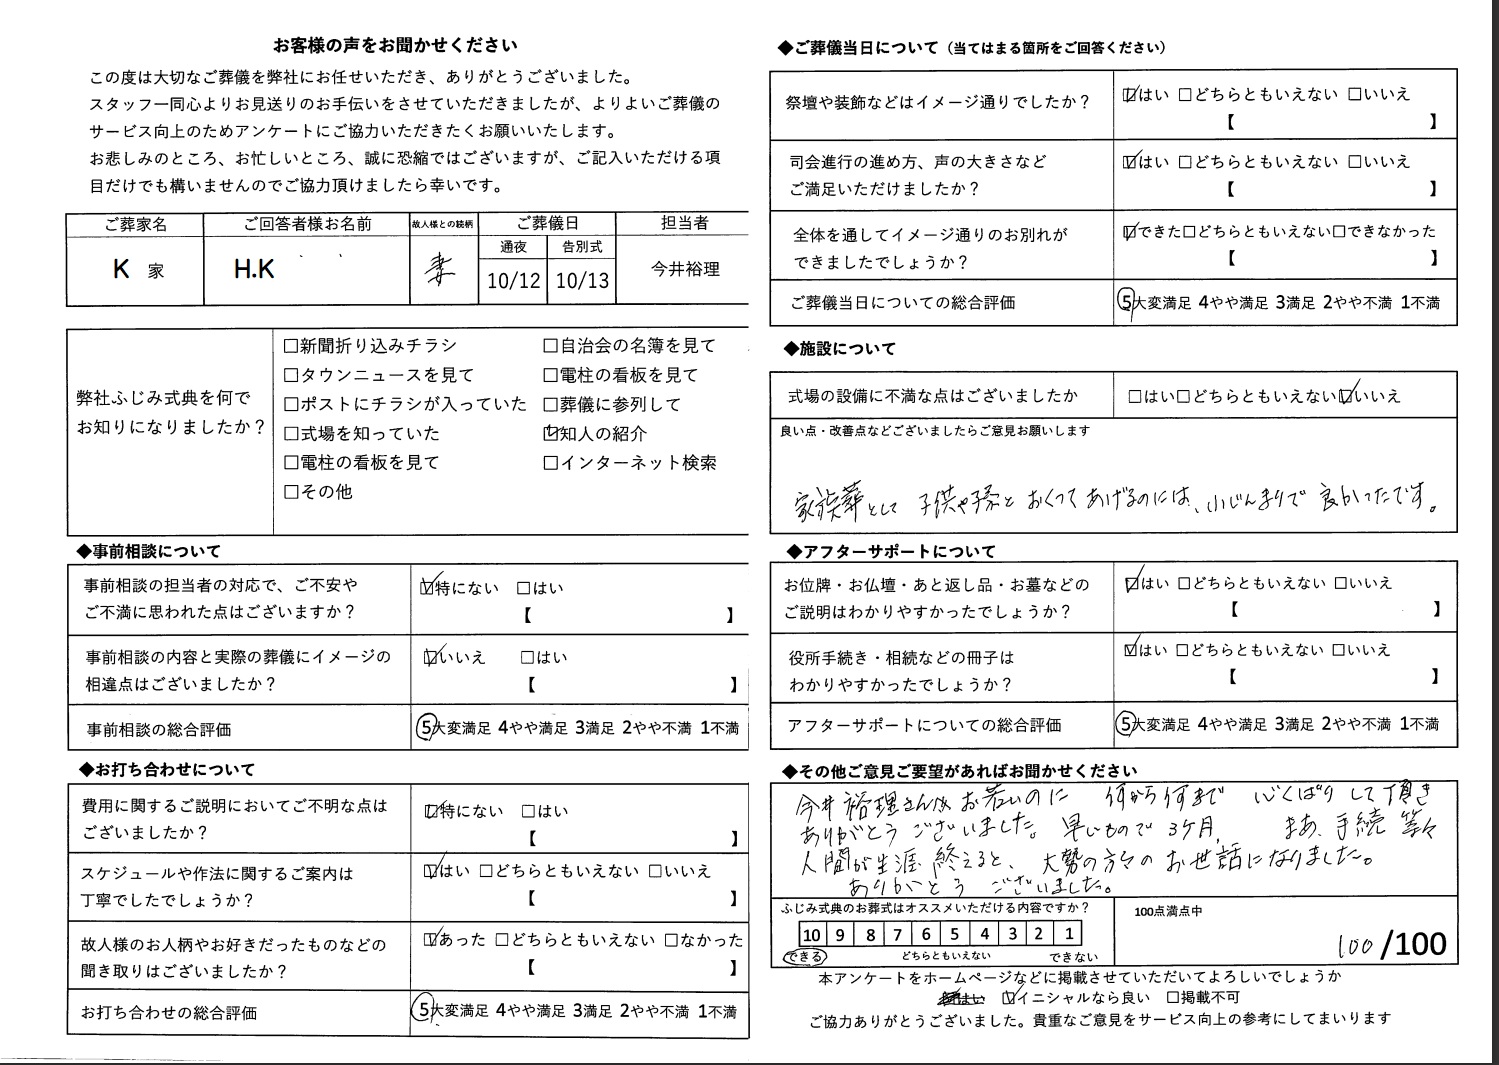 お客様の声をお聞かせください
この度は大切なご葬儀を弊社にお任せいただき、ありがとうございました。
スタッフ一同心よりお見送りのお手伝いをさせていただきましたが、よりよいご葬儀の
サービス向上のためアンケートにご協力いただきたくお願いいたします。
お悲しみのところ、お忙しいところ、誠に恐縮ではございますが、ご記入いただける項
目だけでも構いませんのでご協力頂けましたら幸いです。
ご葬家名 ご回答者様お名前 故人様との続柄 ご葬儀日 担当者
通夜 告別式
K 家 H.K 妻 10/12 10/13 今井裕理
弊社ふじみ式典を何で
お知りになりましたか？
□新聞折り込みチラシ □自治会の名簿を見て
□タウンニュースを見て □電柱の看板を見て
□ポストにチラシが入っていた □葬儀に参列して
□式場を知っていた ☑知人の紹介
□電柱の看板を見て □インターネット検索
□その他
◆事前相談について
事前相談の担当者の対応で、ご不安や
ご不満に思われた点はございますか？
☑特にない □はい
【 】
事前相談の内容と実際の葬儀にイメージの
相違点はございましたか？
☑いいえ □はい
【 】
事前相談の総合評価 5大変満足 4やや満足 3満足 2やや不満 1不満
◆お打ち合わせについて
費用に関するご説明においてご不明な点は
ございましたか？
☑特にない □はい
【 】
スケジュールや作法に関するご案内は
丁寧でしたでしょうか？
☑はい □どちらともいえない □いいえ
【 】
故人様のお人柄やお好きだったものなどの
聞き取りはございましたか？
☑あった □どちらともいえない □なかった
【 】
お打ち合わせの総合評価 5大変満足 4やや満足 3満足 2やや不満 1不満
◆ご葬儀当日について（当てはまる箇所をご回答ください）
祭壇や装飾などはイメージ通りでしたか？
☑はい □どちらともいえない □いいえ
【 】
司会進行の進め方、声の大きさなど
ご満足いただけましたか？
☑はい □どちらともいえない □いいえ
【 】
全体を通してイメージ通りのお別れが
できましたでしょうか？
☑できた□どちらともいえない□できなかった
【 】
ご葬儀当日についての総合評価 5大変満足 4やや満足 3満足 2やや不満 1不満
◆施設について
式場の設備に不満な点はございましたか □はい□どちらともいえない☑いいえ
良い点・改善点などございましたらご意見お願いします
家族葬として 子供や孫と おくってあげるのには、小じんまりで 良かったです。
◆アフターサポートについて
お位牌・お仏壇・あと返し品・お墓などの
ご説明はわかりやすかったでしょうか？
☑はい □どちらともいえない □いいえ
【 】
役所手続き・相続などの冊子は
わかりやすかったでしょうか？
☑はい □どちらともいえない □いいえ
【 】
アフターサポートについての総合評価 5大変満足 4やや満足 3満足 2やや不満 1不満
◆その他ご意見ご要望があればお聞かせください
今井裕理さんは お若いのに 何から何まで 心くばり して頂き
ありがとう ございました。早いもので 3ケ月、 まあ、手続 等々
人間が生涯 終えると、大勢の方々の お世話になりました。
ありがとう ございました。
ふじみ式典のお葬式はオススメいただける内容ですか？
10 9 8 7 6 5 4 3 2 1
できる どちらともいえない できない
100点満点中
100/100
本アンケートをホームページなどに掲載させていただいてよろしいでしょうか
☑イニシャルなら良い □掲載不可
ご協力ありがとうございました。貴重なご意見をサービス向上の参考にしてまいります